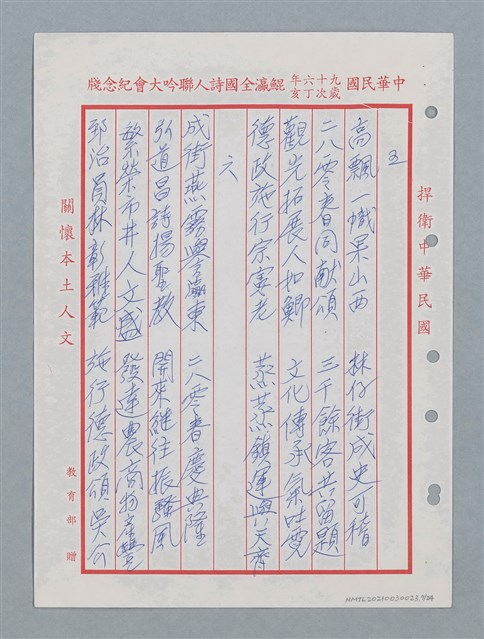 中華民國九十六年歲次丁亥鯤瀛全國詩人聯吟大會紀念牋
捍衛中華民國
五
高飄一幟杲山西 林仔街成史可稽
二八零春同献頌 三千餘客共留題
觀光拓展人如鯽 文化傳承氣吐霓
德政施行宗憲老 蒸蒸鎮運與天齊
六
成街燕霧興瀛東 二八零春慶典隆
弘道昌詩揚聖教 開來繼往振騷風
繁榮市井人文盛 發達農商物產豐
郅治員林彰雅範 施行德政頌吳公
關懷本土人文
教育部贈
NMTL20210030023.7/24